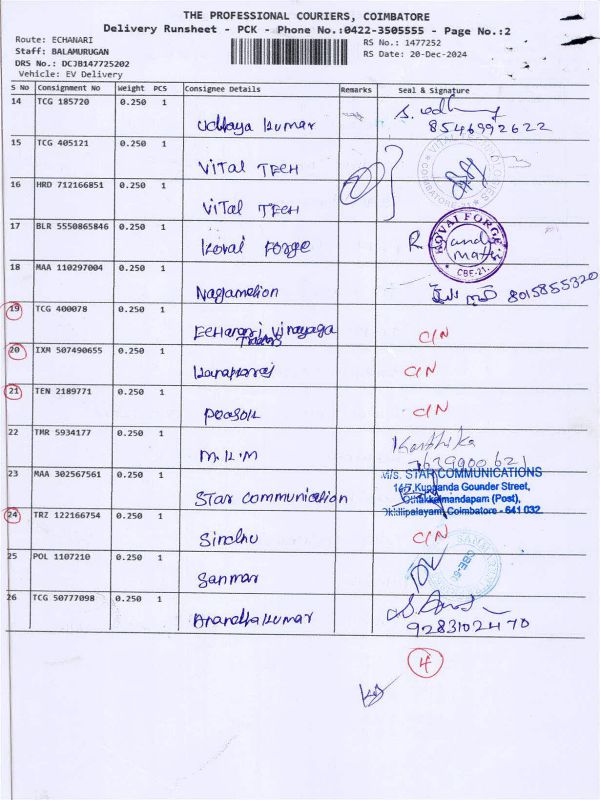 THE PROFESSIONAL COURIERS, COIMBATORE
Delivery Runsheet - PCK - Phone No.:0422-3505555 - Page No.:2
Route: ECHANARI
RS No.: 1477252
Staff: BALAMURUGAN
RS Date: 20-Dec-2024
DRS No.: DCJB147725202
Vehicle: EV Delivery
S No Consignment No Weight PCS Consignee Details Remarks Seal & Signature
14 TCG 185720 0.250 1
Udhaya Kumar 8546992622
15 TCG 405121 0.250 1
Vital TECH
16 HRD 712166851 0.250 1
Vital TECH
17 BLR 5550865846 0.250 1
Kovai Forge KOVAI FORGE CBE-21.
18 MAA 110297004 0.250 1
8015855320
19 TCG 400078 0.250 1
Vinayaga C/N
Traders
20 IXM 507490655 0.250 1
C/N
21 TEN 2189771 0.250 1
C/N
22 TMR 5934177 0.250 1 Karthika
M.K.M 7639900621
23 MAA 302567561 0.250 1 M/s. STAR COMMUNICATIONS
Star Communication
Coimbatore - 641 032.
24 TRZ 122166754 0.250 1
Sindhu C/N
25 POL 1107210 0.250 1
Sanmar
26 TCG 50777098 0.250 1
Anandhakumar 9283102470
4